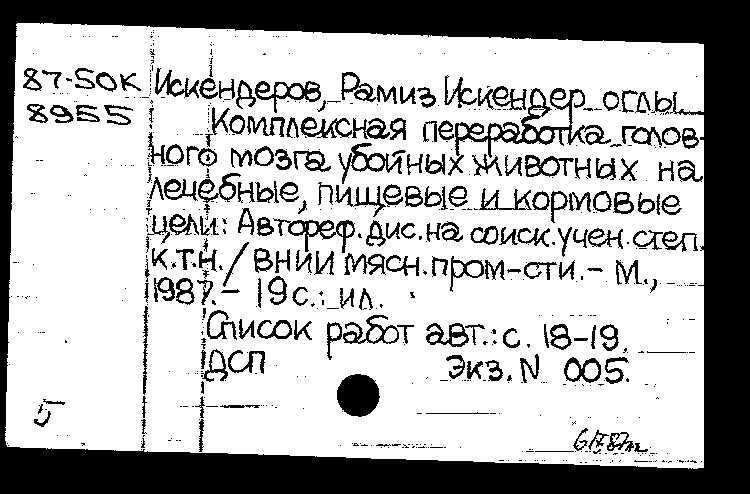 87-50К Искендеров, Рамиз Искендер оглы
8955 Комплексная переработка голов-
ного мозга убойных животных на
лечебные, пищевые и кормовые
цели: Автореф. дис. на соиск. учен. степ.
к.т.н. / ВНИИ мясн. пром-сти. – М.,
1987. – 19 с.: ил.
Список работ авт.: с. 18–19.
ДСП Экз. N 005.
5